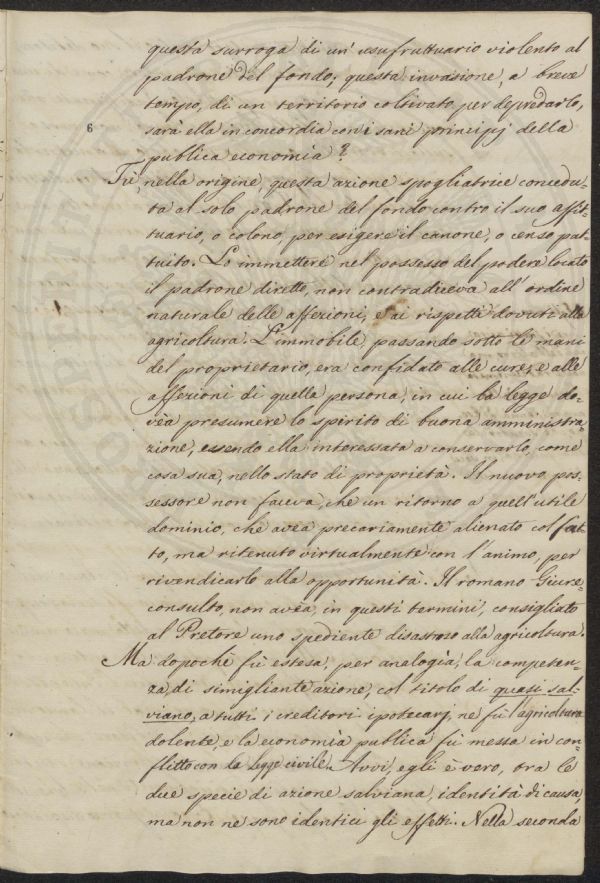 questa surroga di un' usufruttuario violento al
padrone del fondo, questa invasione, a breve
tempo, di un territorio coltivato per depredarlo,
6
sarà ella in concordia con i sani principj della
publica economia?
Fù, nella origine, questa azione spogliatrice concedu-
ta al solo padrone del fondo contro il suo affit-
tuario, o colono, per esigere il canone, o censo pat-
tuito. Lo immettere nel possesso del podere locato
il padrone diretto, non contradiceva all' ordine
naturale delle affezioni, e ai rispetti dovuti alla
agricoltura. L'immobile, passando sotto le mani
del proprietario, era confidato alle cure, e alle
affezioni di quella persona, in cui la legge do-
vea presumere lo spirito di buona amministra-
zione, essendo ella interessata a conservarlo, come
cosa sua, nello stato di proprietà. Il nuovo pos-
sessore non faceva, che un ritorno a quell' utile
dominio, che avea precariamente alienato col fat-
to, ma ritenuto virtualmente con l'animo, per
rivendicarlo alla opportunità. Il romano Giure-
consulto, non avea, in questi termini, consigliato
al Pretore uno spediente disastroso alla agricoltura.
Ma dopochè fù estesa, per analogia, la competen-
za di simigliante azione, col titolo di quasi sal-
viano, a tutti i creditori ipotecarj, ne fù l'agricoltura
dolente, e la economia publica fù messa in con-
flitto con la legge civile. Avvi, egli è vero, tra le
due specie di azione salviana, identità di causa,
ma non ne sono identici gli effetti. Nella seconda